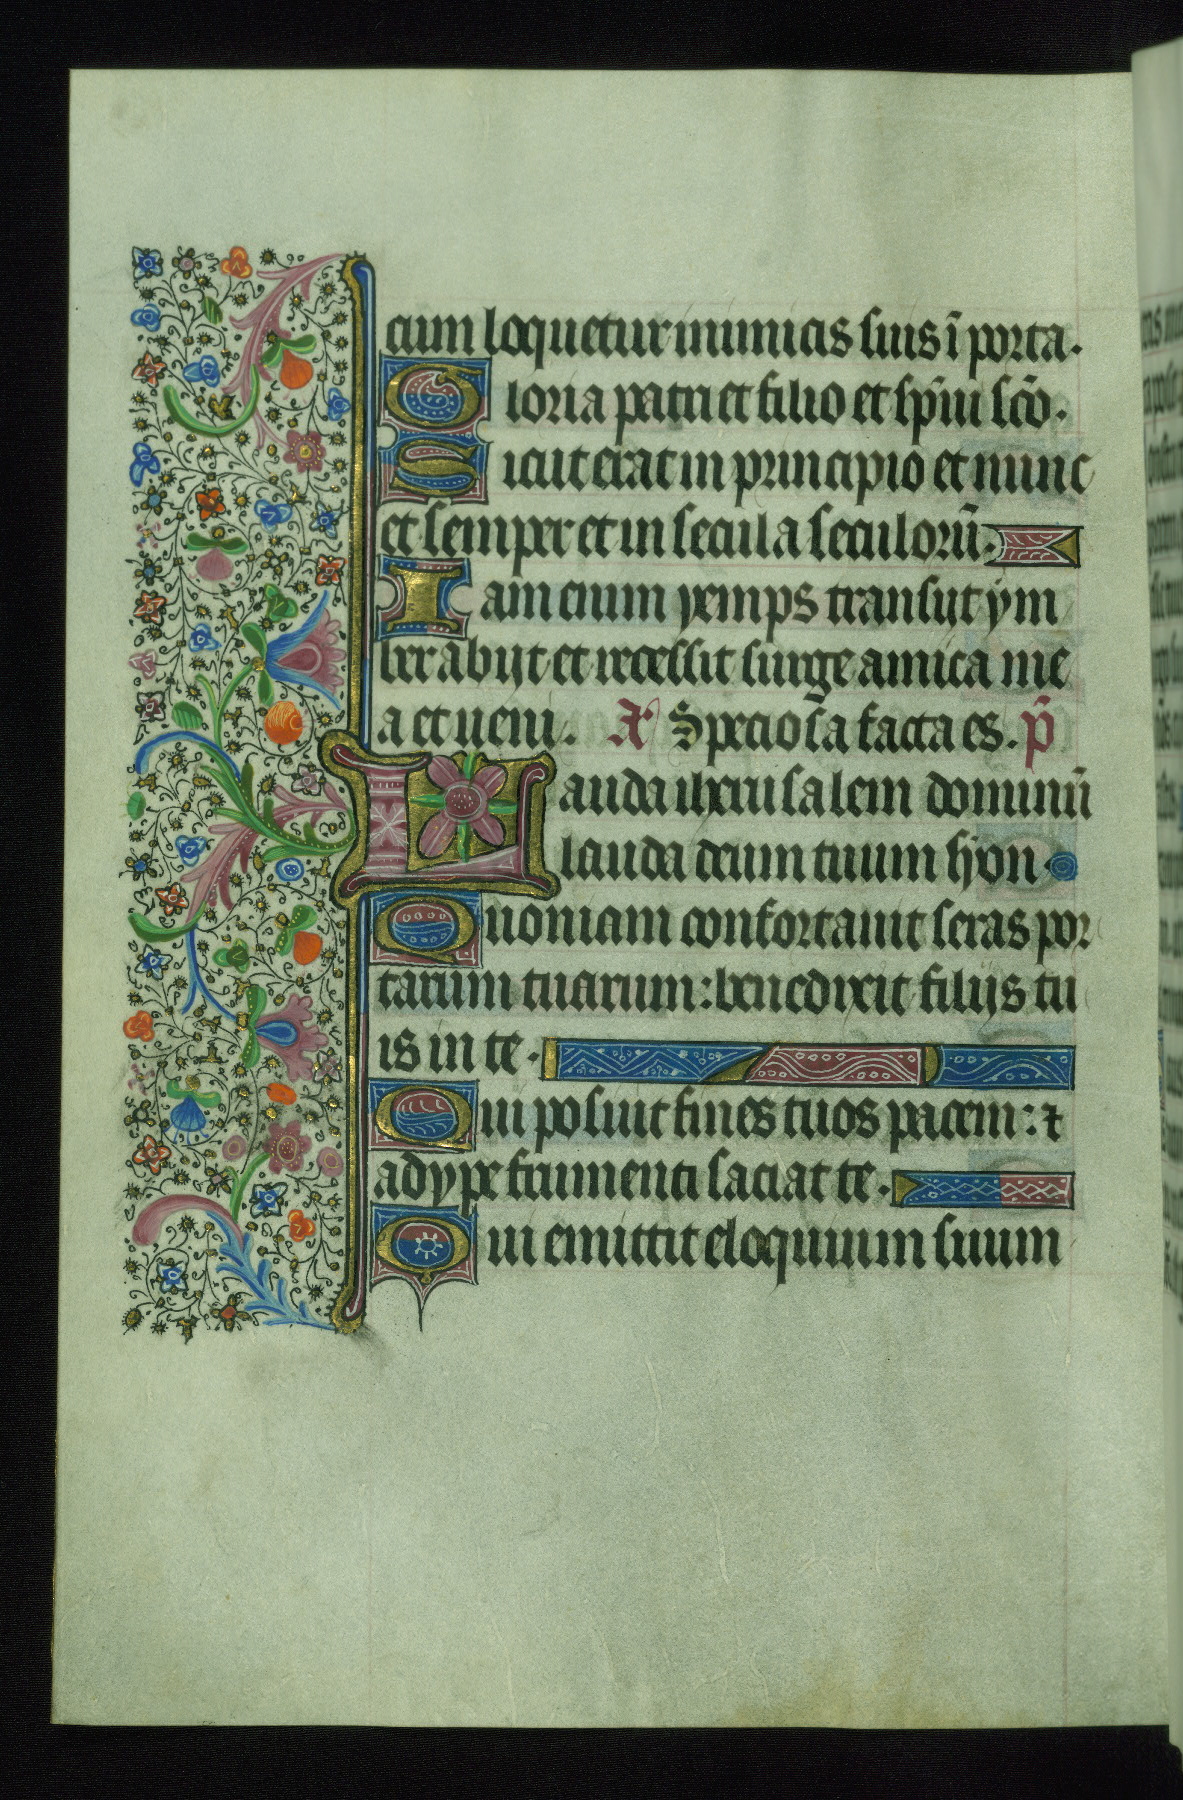 cum loquetur inimicis suis ī porta.
Gloria patri et filio et sp̄iui sc̄o.
Sicut erat in principio et nunc
et semper et in secula seculorū.
Iam enim yemps transijt ym
ber abijt et recessit surge amica me
a et ueni. Speciosa facta es. p̄
Lauda iherusalem dominū
lauda deum tuum syon.
Quoniam confortauit seras por
tarum tuarum: benedixit filijs tu
is in te.
Qui posuit fines tuos pacem: ⁊
adype frumenti saciat te.
Qui emittit eloquium suum